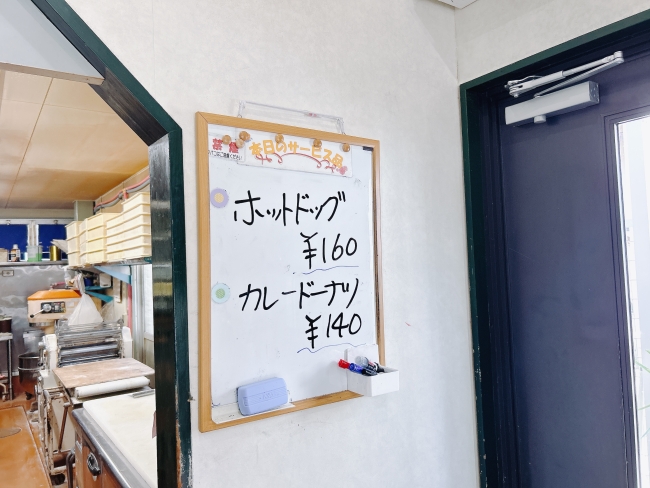 本日のサービス品
ホットドッグ
¥160
カレードーナツ
¥140